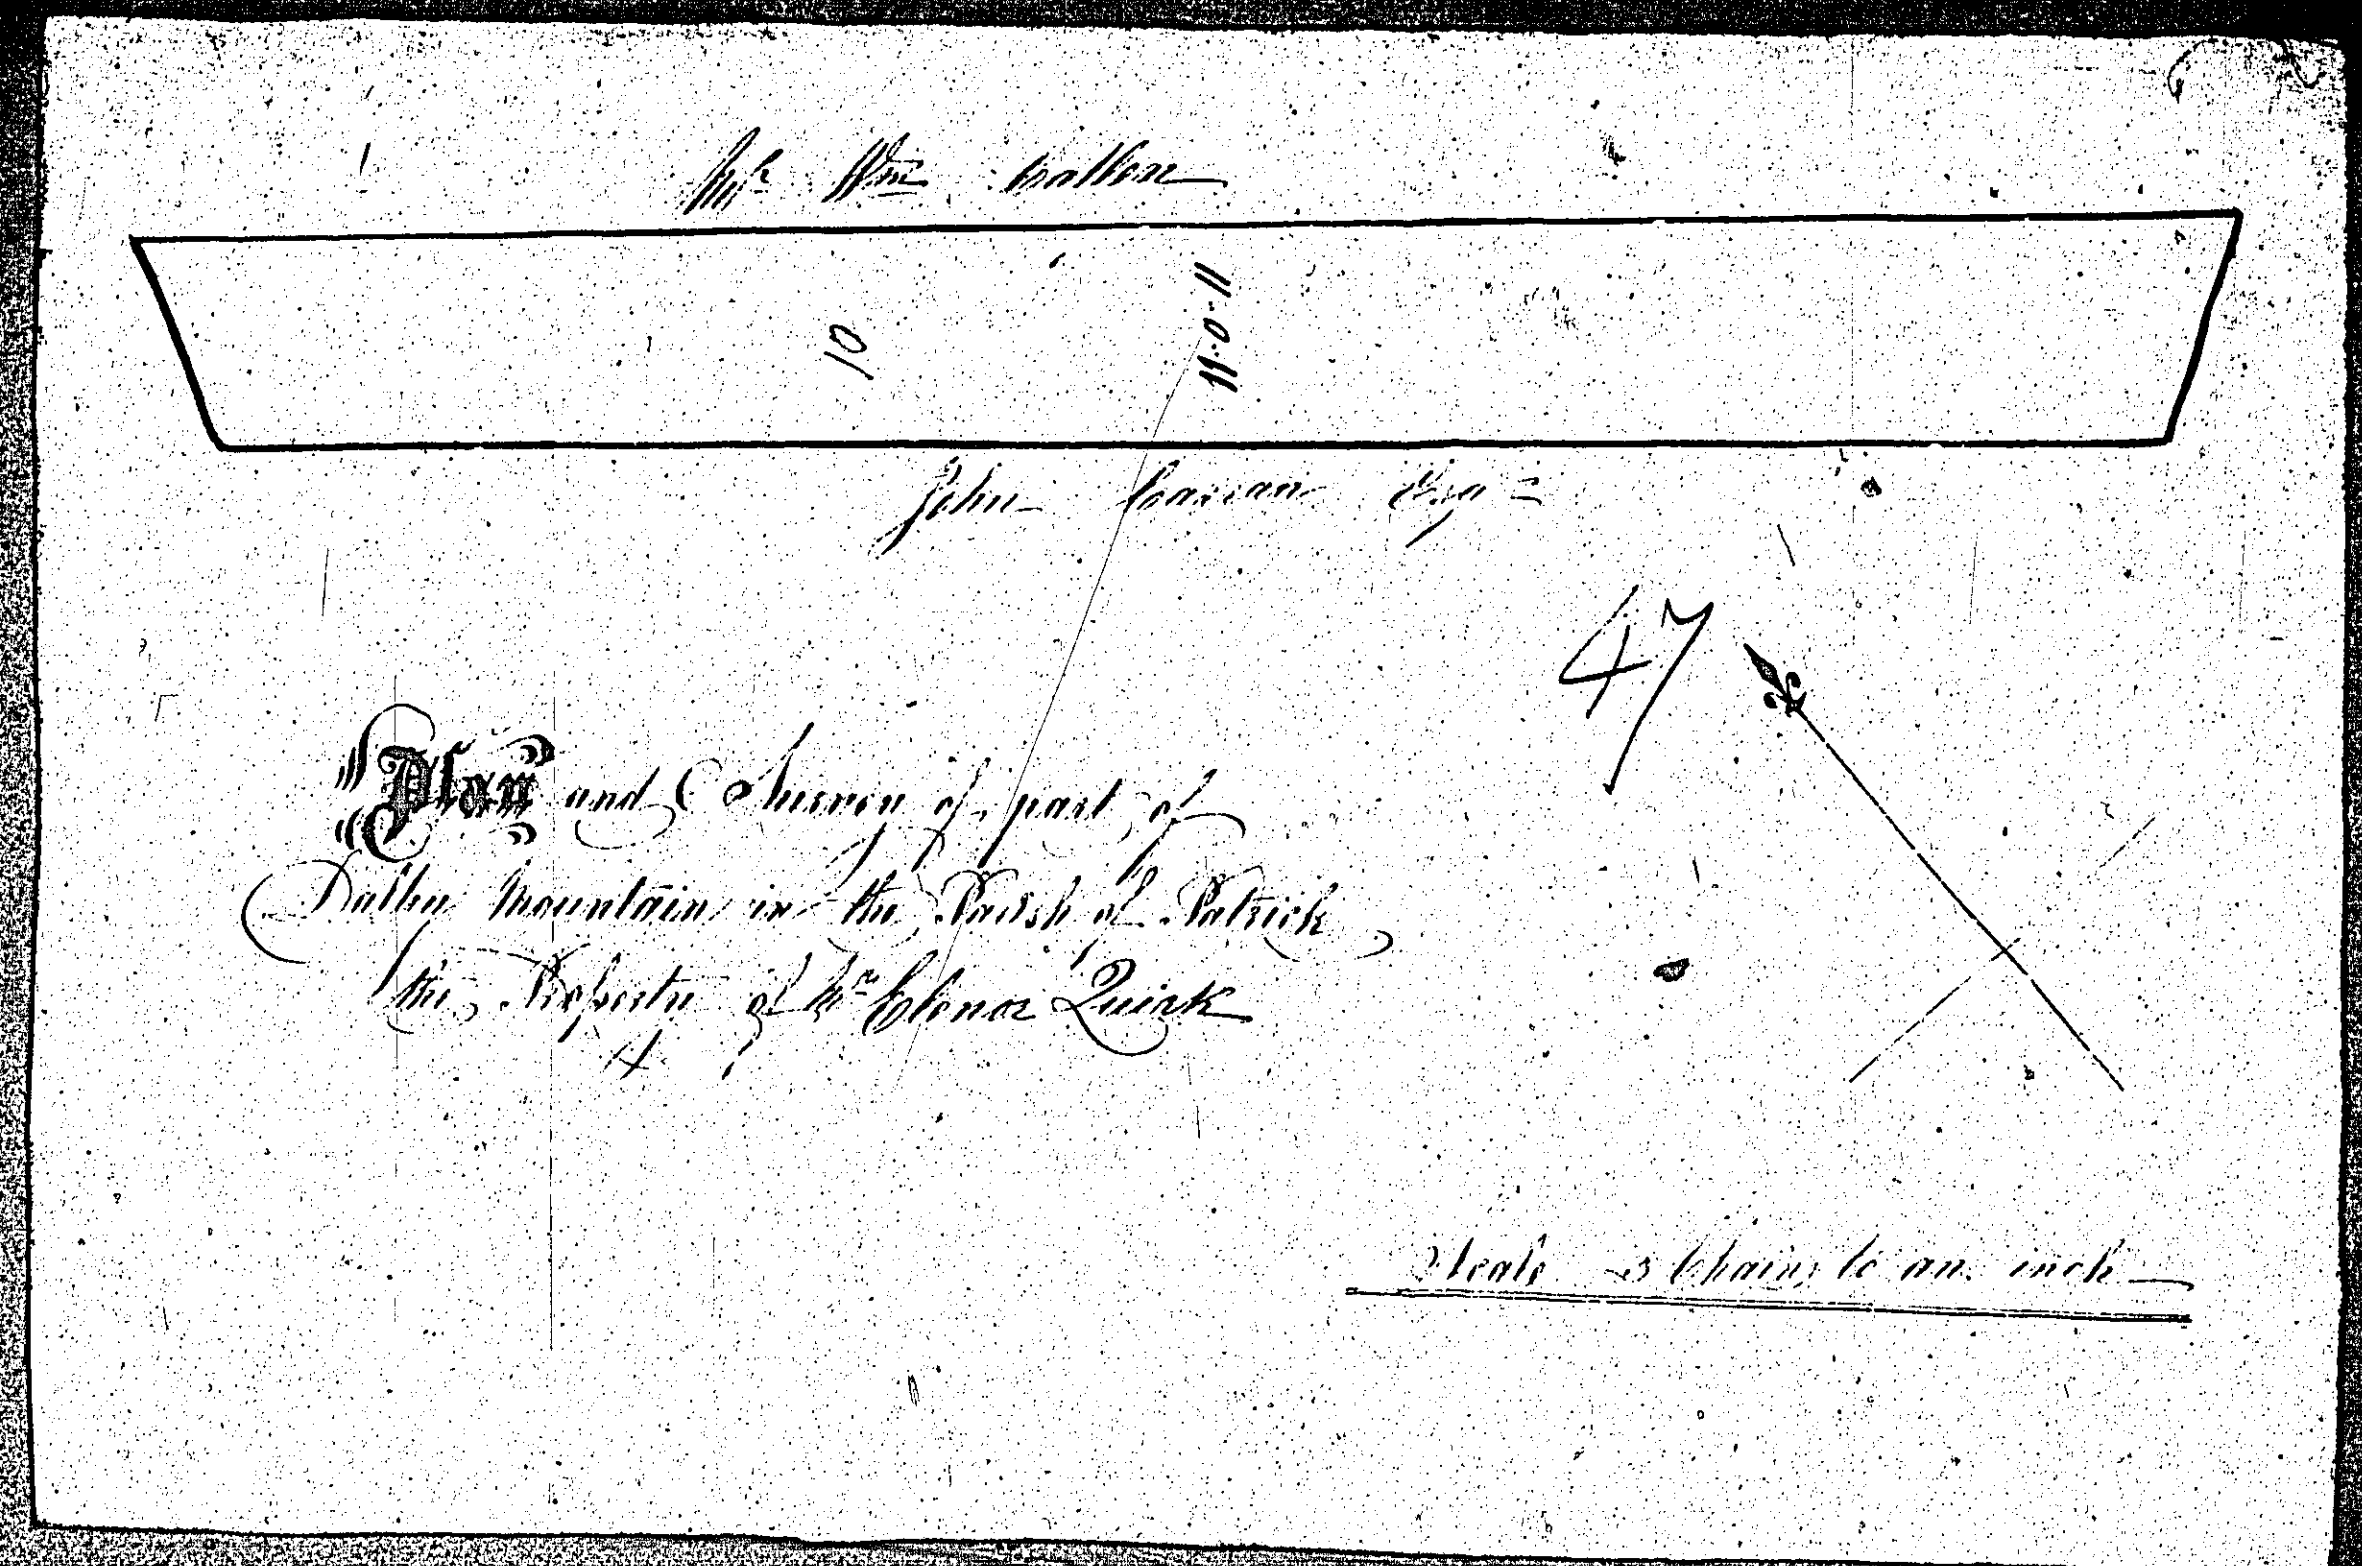 Mr Wm Callow
10
11·0·11
John Caran Esq
47
Plan and Survey of part of
Dalby Mountain in the Parish of Patrick
the Property of Mrs Elenor Quirk
Scale 3 Chains to an inch